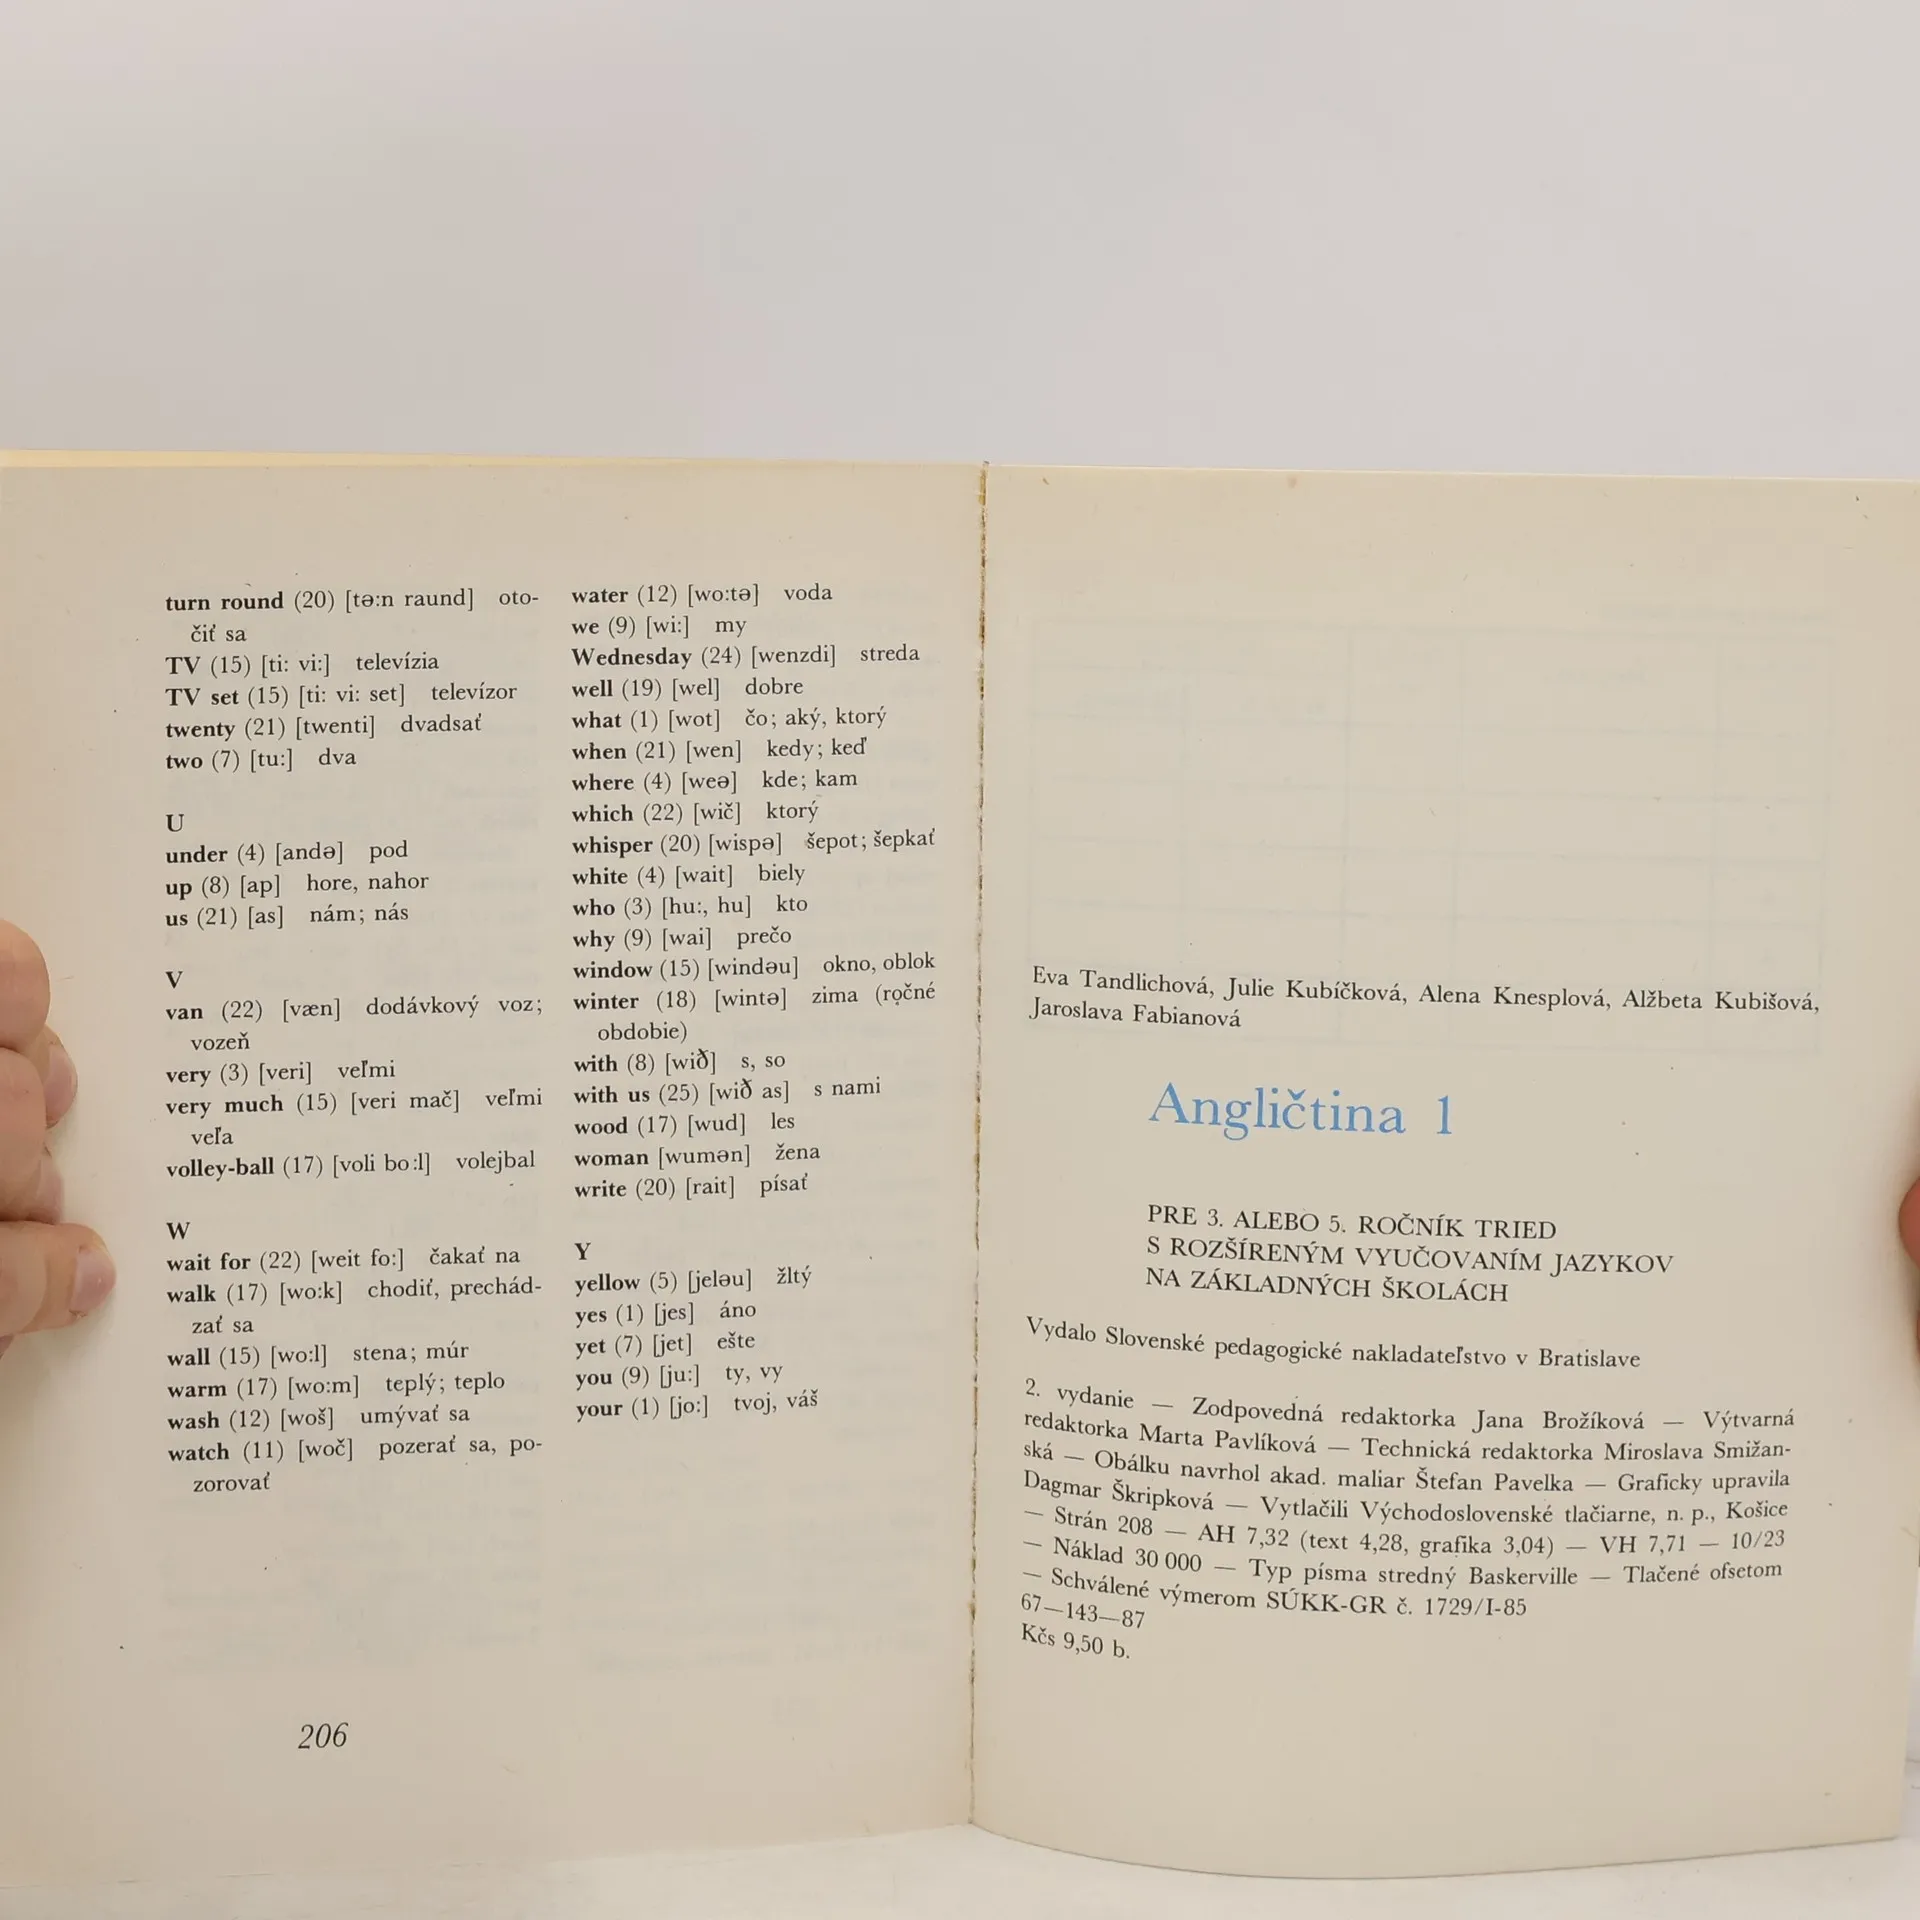 turn round (20) [tə:n raund] oto-
čiť sa
TV (15) [ti: vi:] televízia
TV set (15) [ti: vi: set] televízor
twenty (21) [twenti] dvadsať
two (7) [tu:] dva
U
under (4) [andə] pod
up (8) [ap] hore, nahor
us (21) [as] nám; nás
V
van (22) [væn] dodávkový voz;
vozeň
very (3) [veri] veľmi
very much (15) [veri mač] veľmi
veľa
volley-ball (17) [voli bo:l] volejbal
W
wait for (22) [weit fo:] čakať na
walk (17) [wo:k] chodiť, prechád-
zať sa
wall (15) [wo:l] stena; múr
warm (17) [wo:m] teplý; teplo
wash (12) [woš] umývať sa
watch (11) [woč] pozerať sa, po-
zorovať
water (12) [wo:tə] voda
we (9) [wi:] my
Wednesday (24) [wenzdi] streda
well (19) [wel] dobre
what (1) [wot] čo; aký, ktorý
when (21) [wen] kedy; keď
where (4) [weə] kde; kam
which (22) [wič] ktorý
whisper (20) [wispə] šepot; šepkať
white (4) [wait] biely
who (3) [hu:, hu] kto
why (9) [wai] prečo
window (15) [windəu] okno, oblok
winter (18) [wintə] zima (ročné
obdobie)
with (8) [wið] s, so
with us (25) [wið as] s nami
wood (17) [wud] les
woman [wumən] žena
write (20) [rait] písať
Y
yellow (5) [jeləu] žltý
yes (1) [jes] áno
yet (7) [jet] ešte
you (9) [ju:] ty, vy
your (1) [jo:] tvoj, váš
206
Eva Tandlichová, Julie Kubíčková, Alena Knesplová, Alžbeta Kubišová,
Jaroslava Fabianová
Angličtina 1
PRE 3. ALEBO 5. ROČNÍK TRIED
S ROZŠÍRENÝM VYUČOVANÍM JAZYKOV
NA ZÁKLADNÝCH ŠKOLÁCH
Vydalo Slovenské pedagogické nakladateľstvo v Bratislave
2. vydanie — Zodpovedná redaktorka Jana Brožíková — Výtvarná
redaktorka Marta Pavlíková — Technická redaktorka Miroslava Smižan-
ská — Obálku navrhol akad. maliar Štefan Pavelka — Graficky upravila
Dagmar Škripková — Vytlačili Východoslovenské tlačiarne, n. p., Košice
— Strán 208 — AH 7,32 (text 4,28, grafika 3,04) — VH 7,71 — 10/23
— Náklad 30 000 — Typ písma stredný Baskerville — Tlačené ofsetom
— Schválené výmerom SÚKK-GR č. 1729/I-85
67—143—87
Kčs 9,50 b.